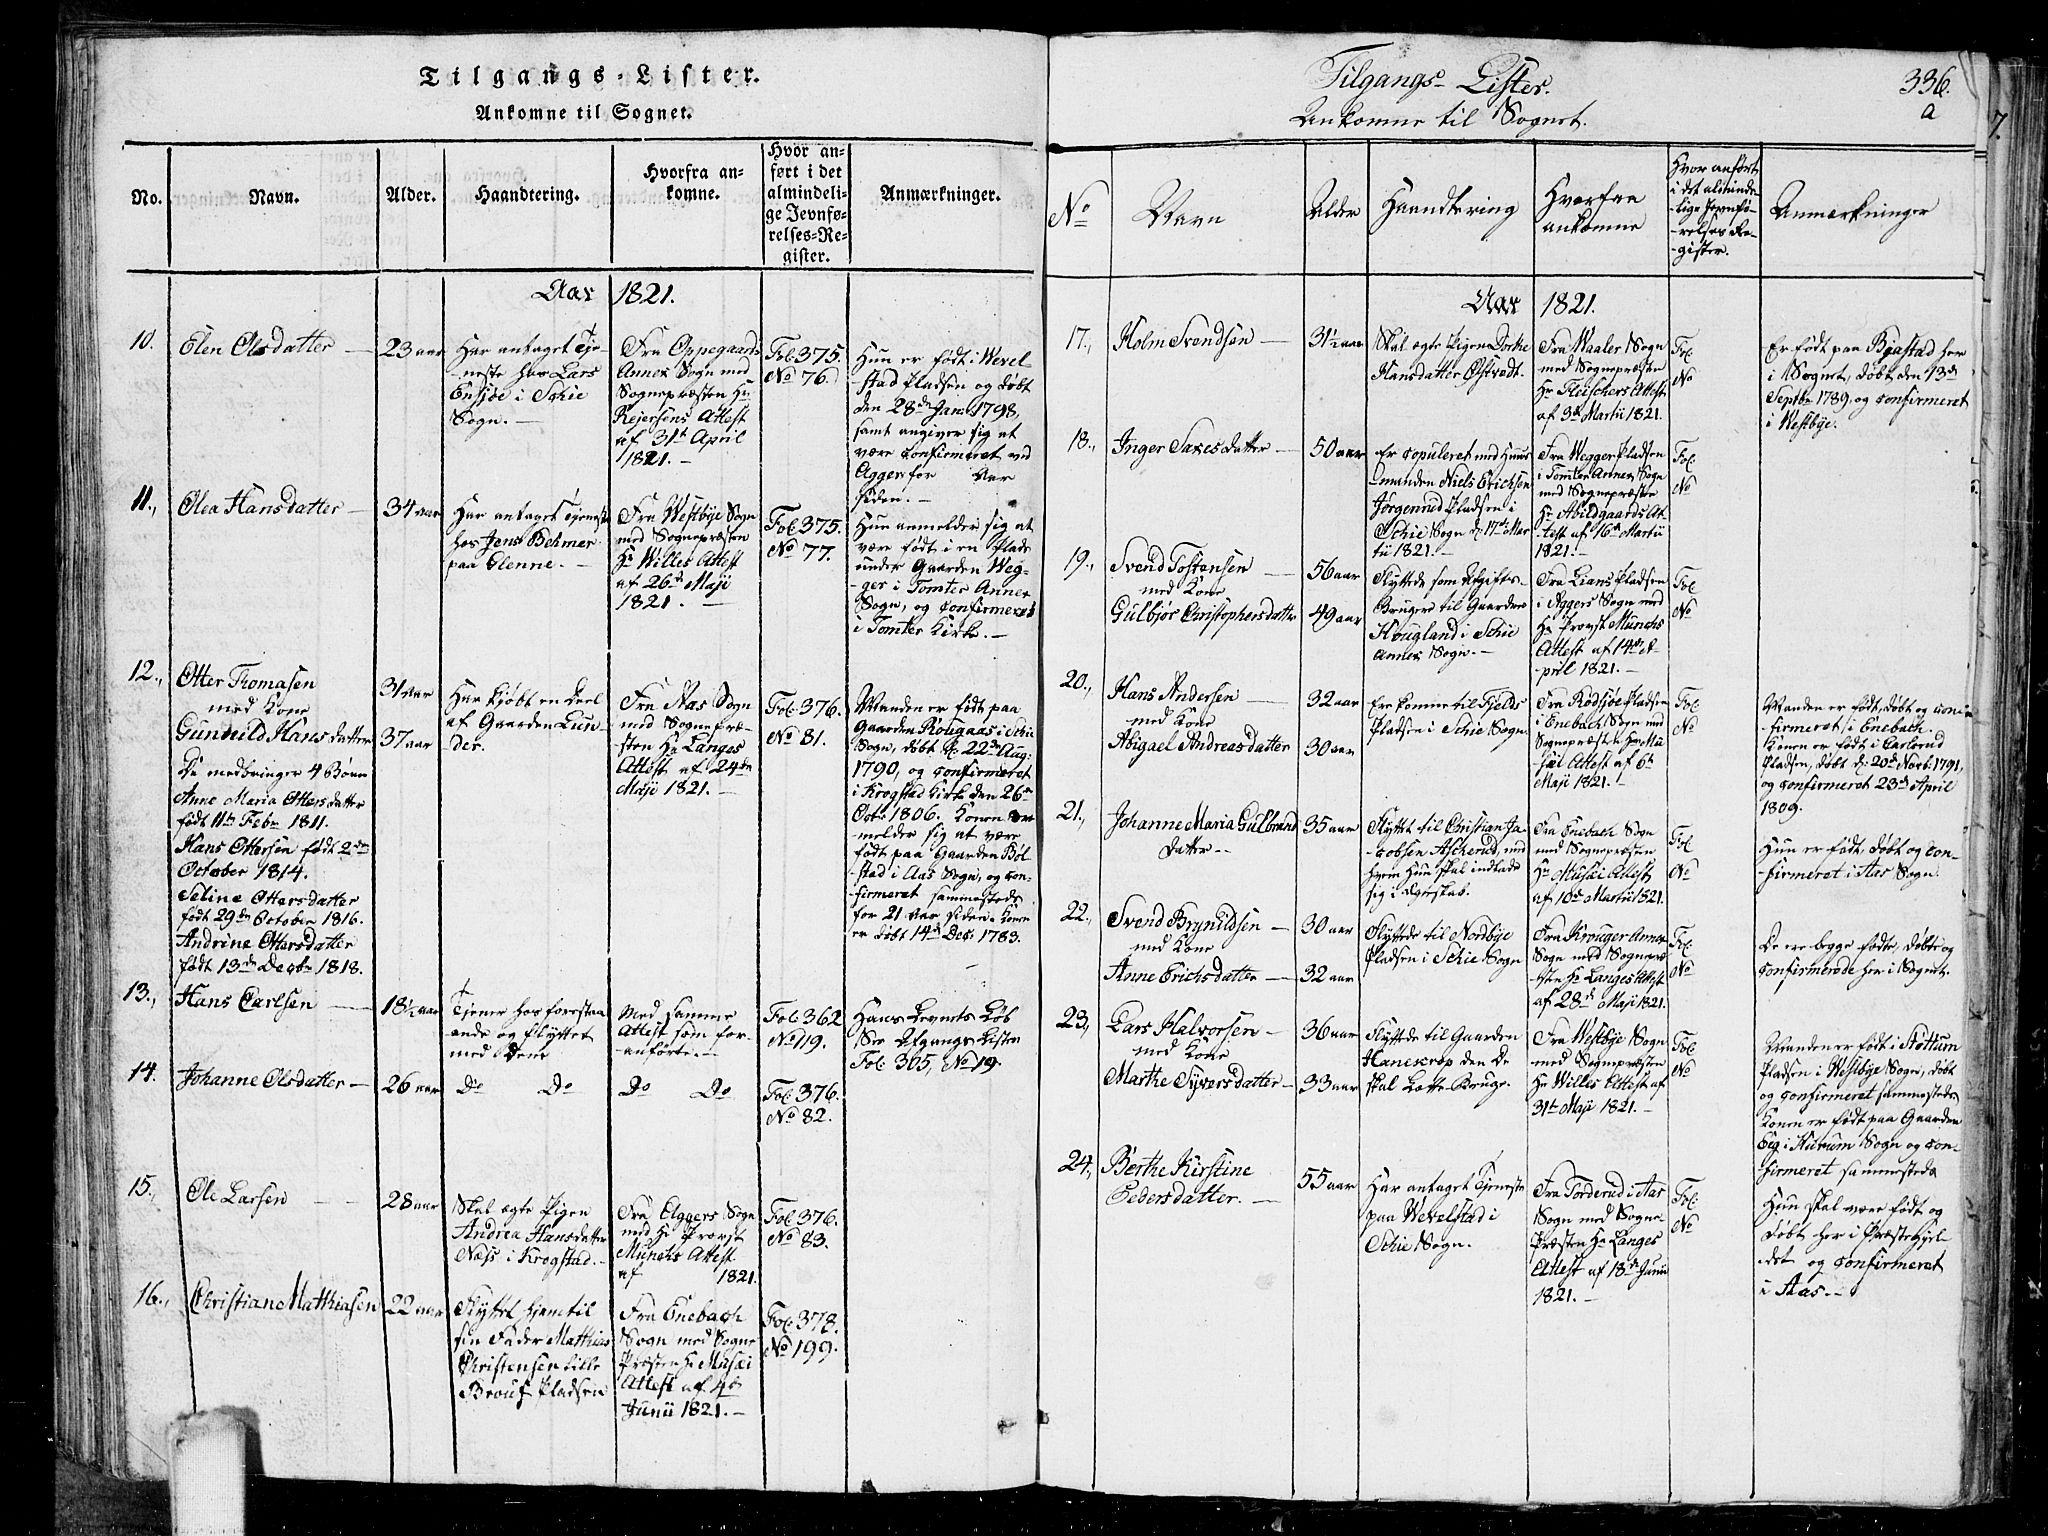 Tilgangs-Lister.
Ankomne til Sognet.
No.
Navn.
Alder.
Haandtering.
Hvorfra an-
komne.
Hvor an-
ført i det
almindeli-
ge Jevnfø-
relses-Re-
gister.
Anmærkninger.
Aar 1821.
10.
Elen Olsdatter
23 aar
Har antaget Tje-
neste hos Lars
Ensjøe i Schie
Sogn.
Fra Oppegaards
Annex Sogn med
Sognepræsten Hr
Rejersens Attest
af 31te April
1821.
Fol. 375.
No 76.
Hun er født i Wevel
stad Pladsen og døbt
den 28de Jan: 1798,
samt angiver sig at
være confirmeret ved
Agger for Aar
siden.
11.,
Olea Hansdatter
34 aar
Har antaget Tjeneste
hos Jens Behmer
paa Glenne.
Fra Westbye Sogn
med Sognepræsten
Hr Willes Attest
af 26de Maji
1821.
Fol. 375.
No 77.
Hun anmelder sig at
være født i en Plads
under Gaarden Weg-
ger i Tomter Annex
Sogn, og confirmeret
i Tomter Kirke.
12.,
Otter Thomasen
med Kone
Gunnild Hansdatter
De medbringer 4 Børn
Anne Maria Ottersdatter
født 11te Febr 1811.
Hans Ottersen født 2den
October 1814.
Seline Ottersdatter
født 29de October 1816.
Andrine Ottersdatter
født 13de Decbr 1818.
31 aar
37 aar
Har kjøbt en Deel
af Gaarden Lun-
der.
Fra Aas Sogn
med Sognepræ-
sten Hr Langes
Attest af 24de
Maji 1821.
Fol. 376.
No 81.
Manden er født paa
Gaarden Kougaas i Schie
Sogn, døbt d: 22de Aug:
1790, og confirmeret
i Krogstad Kirke den 26de
Octr 1806. Konen an
melder sig at være
født paa Gaarden Bøl
stad i Aas Sogn, og con-
firmeret sammesteds
for 21 Aar siden. Konen
er døbt 14de Dec: 1783.
13.,
Hans Carlsen
18½ aar
Tjener hos forestaa
ende og flyttet
med Dem
Med samme
Attest som for-
anførte.
Fol. 362
No 119.
Hans Levnets Løb
See Afgangs Listen
Fol. 305, No 19.
14.
Johanne Olsdatter
26 aar
Do Do
Do Do
Fol. 376.
No 82.
15.,
Ole Larsen
28 aar
Skal ægte Pigen
Andrea Hansdatter
Næss i Krogstad.
Fra Aggers Sogn
med Hr Provst
Munchs Attest
af 1821.
Fol. 376.
No 83.
16.,
Christian Matthiasen
22 aar
Flyttet hjem til
sin Fader Matthias
Christensen Lille
Brouf Pladsen
Fra Enebach
Sogn med Sogne
Præsten Hr Musæi
Attest af 4de
Junii 1821.
Fol. 378.
No 199.
Tilgangs-Lister.
Ankomne til Sognet.
336.
a
No
Navn
Alder
Haandtering
Hvorfra
ankomne
Hvor anført
i det alminde
lige Jevnfø-
relses Re-
gister.
Anmærkninger
Aar 1821.
17.,
Holm Svendsen
31½ aar
Skal ægte Pigen Dorthe
Hansdatter Østvedt.
Fra Waaler Sogn
med Sognepræsten
Hr Fleischers Attest
af 3de Martii 1821.
Fol.
No
Er født paa Bjastad her
i Sognet, døbt den 13de
Septbr 1789, og confirmeret
i Westbye.
18.,
Inger Saxesdatter
50 aar
Er copuleret med Huus
Lmanden Niels Erichsen
Jørgenrud Pladsen i
Schie Sogn d: 17de Mar
tii 1821.
Fra Wegger Pladsen
i Tomter Annex Sogn
med Sognepræsten
Hr Abildgaards At-
test af 16de Martii
1821.
Fol.
No
19.,
Svend Tostensen
med Kone
Gulbjør Christophersdatter
56 aar
49 aar
Flyttede som Afgifts-
Bruger til Gaarden
Hougland i Schie
Annex Sogn.
Fra Lians Pladsen
i Aggers Sogn med
Hr Provst Munchs
Attest af 14de A-
pril 1821.
Fol.
No
20.,
Hans Andersen
med Kone
Abigael Andreasdatter
32 aar
30 aar
Er komne til Fjelds
Pladsen i Schie Sogn.
Fra Rødsjøe Pladsen
i Enebach Sogn med
Sognepræsten Hr Mu
sæi Attest af 6te
Maji 1821.
Fol.
No
Manden er født, døbt og con
firmeret i Enebach.
Konen er født i Carlsrud
Pladsen, døbt d: 20de Novb: 1791,
og confirmeret 23de April
1809.
21.,
Johanne Maria Gulbrand
datter
35 aar
Flyttet til Christian Ja-
cobsen Ascherud, med
hvem Hun skal indlade
sig i Ægteskab.
Fra Enebach Sogn
med Sognepræsten
Hr Musæi Attest
af 10de Martii 1821.
Fol.
No
Hun er født, døbt og con-
firmeret i Aas Sogn.
22.,
Svend Brynildsen
med Kone
Anne Erichsdatter
30 aar
32 aar
Flyttede til Nordbye
Pladsen i Schie Sogn
Fra Krouger Annex
Sogn med Sognepræ-
sten Hr Langes Attest
af 28de Maji 1821.
Fol.
No
De ere begge fødte, døbte og
confirmerede her i Sognet.
23.,
Lars Halvorsen
med Kone
Marthe Syversdatter
36 aar
33 aar
Flyttede til Gaarden
Hanescrop den De
skal Lotte-Bruge.
Fra Westbye Sogn
med Sognepræsten
Hr Willes Attest af
31te Maji 1821.
Fol.
No
Manden er født i Støttum
Pladsen i Westbye Sogn, døbt
og confirmeret sammesteds
Konen er født paa Gaarden
Eeg i Hurum Sogn og con-
firmeret sammesteds
24.,
Berthe Kirstine
Pedersdatter.
55 aar
Har antaget Tjeneste
paa Wevelstad i
Schie Sogn.
Fra Torderud i Aas
Sogn med Sogne-
Præsten Hr Langes
Attest af 18de Junii
1821.
Fol.
No
Hun skal være født og
døbt her i Præstegjel-
det og confirmeret
i Aas.
7.